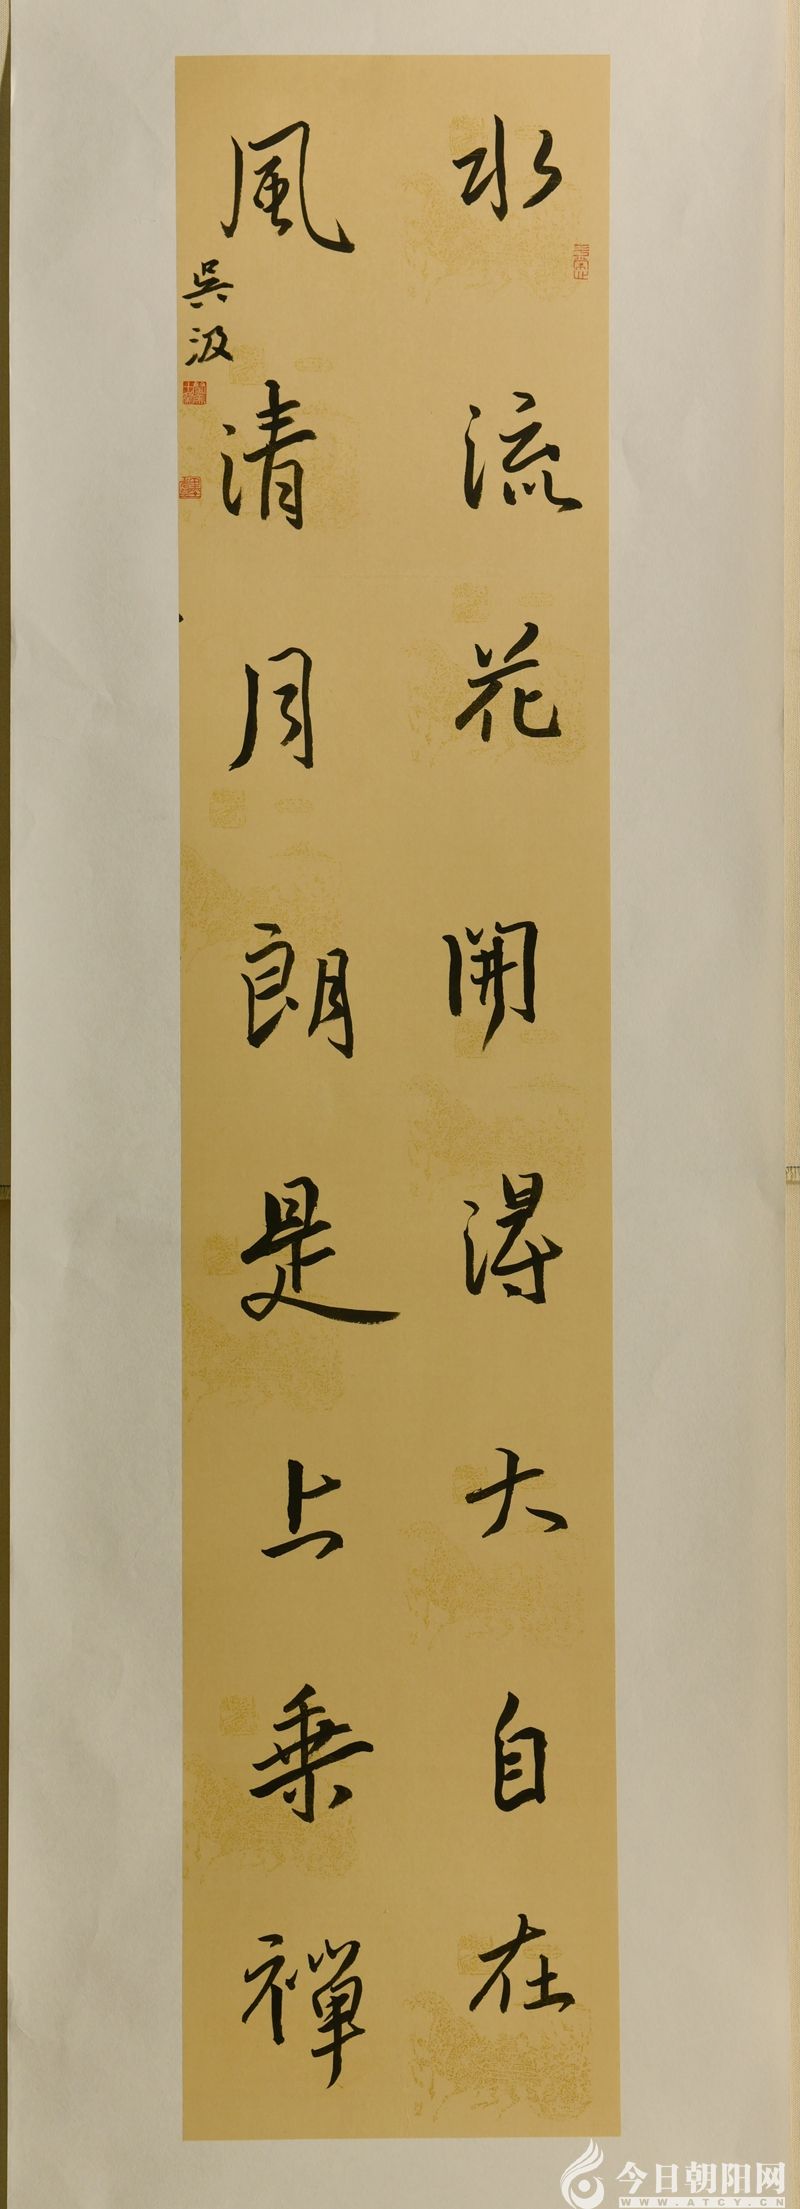 水流花開得大自在
風清月朗是上乘禪
吳汲
今日朝阳网
WWW.ATCY.CN